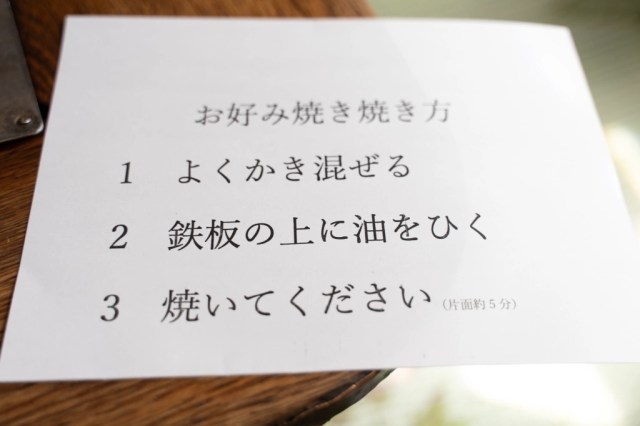 お好み焼き焼き方
1 よくかき混ぜる
2 鉄板の上に油をひく
3 焼いてください（片面約5分）